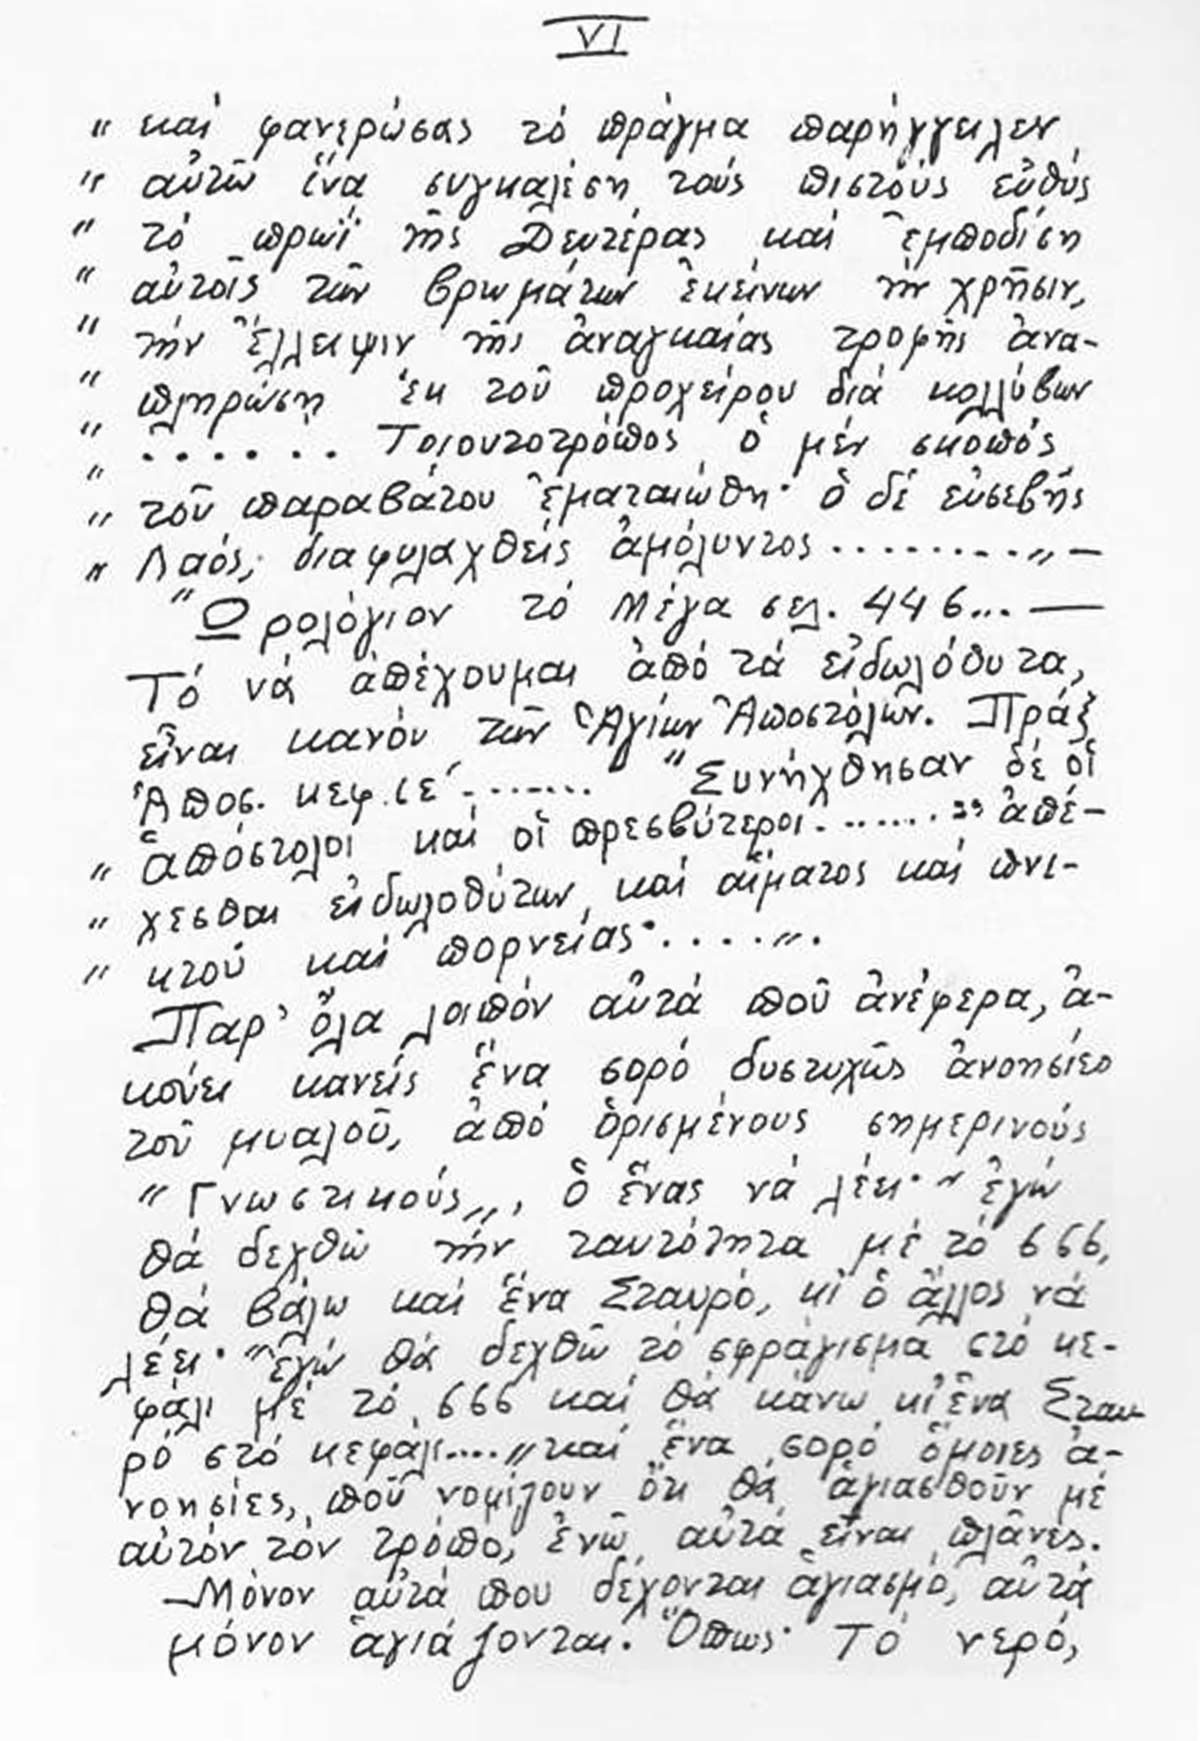 VI
〃 καί φανερώσας τό πρᾶγμα παρήγγειλεν
〃 αὐτῷ ἵνα συγκαλέσῃ τούς πιστούς εὐθύς
〃 τό πρωΐ τῆς Δευτέρας καί ἐμποδίσῃ
〃 αὐτοῖς τῶν βρωμάτων ἐκείνων τήν χρῆσιν,
〃 τήν ἔλλειψιν τῆς ἀναγκαίας τροφῆς ἀνα-
〃 πληρώσῃ ἐκ τοῦ προχείρου διά κολλύβων
〃 ...... Τοιουτοτρόπος ὁ μέν σκοπός
〃 τοῦ παραβάτου ἐματαιώθη· ὁ δέ εὐσεβής
〃 Λαός, διαφυλαχθείς ἀμόλυντος .........〃 —
"Ὡρολόγιον τό Μέγα σελ. 446... —
Τό νά ἀπέχουμαι ἀπό τά εἰδωλόθυτα,
εἶναι κανόν τῶν Ἁγίων Ἀποστόλων. Πράξ
Ἀποσ. κεφ. ιε΄....... "Συνήχθησαν δέ οἱ
〃 ἀπόστολοι καί οἱ πρεσβύτεροι........." ἀπέ-
〃 χεσθαι εἰδωλοθύτων καί αἵματος καί πνι-
〃 κτοῦ καί πορνείας·....〃.
Παρ' ὅλα λοιπόν αὐτά ποῦ ἀνέφερα, ἀ-
κούει κανείς ἕνα σορό δυστυχῶς ἀνοησίες
τοῦ μυαλοῦ, ἀπό ὁρισμένους σημερινούς
"Γνωστικούς〃, ὁ ἕνας νά λέει· "ἐγώ
θά δεχθῶ τήν ταυτότητα μέ τό 666,
θά βάλω καί ἕνα Σταυρό, κι ὁ ἄλλος νά
λέει· "ἐγώ θά δεχθῶ τό σφράγισμα στό κε-
φάλι μέ τό 666 καί θά κάνω κι ἕνα Σταυ-
ρό στό κεφάλι....〃 καί ἕνα σορό ὅμοιες ἀ-
νοησίες, ποῦ νομίζουν ὅτι θά ἁγιασθοῦν μέ
αὐτόν τόν τρόπο, ἐνῶ αὐτά εἶναι πλᾶνες.
—Μόνον αὐτά που δέχονται ἁγιασμό, αὐτά
μόνον ἁγιάζονται. Ὅπως· Τό νερό,